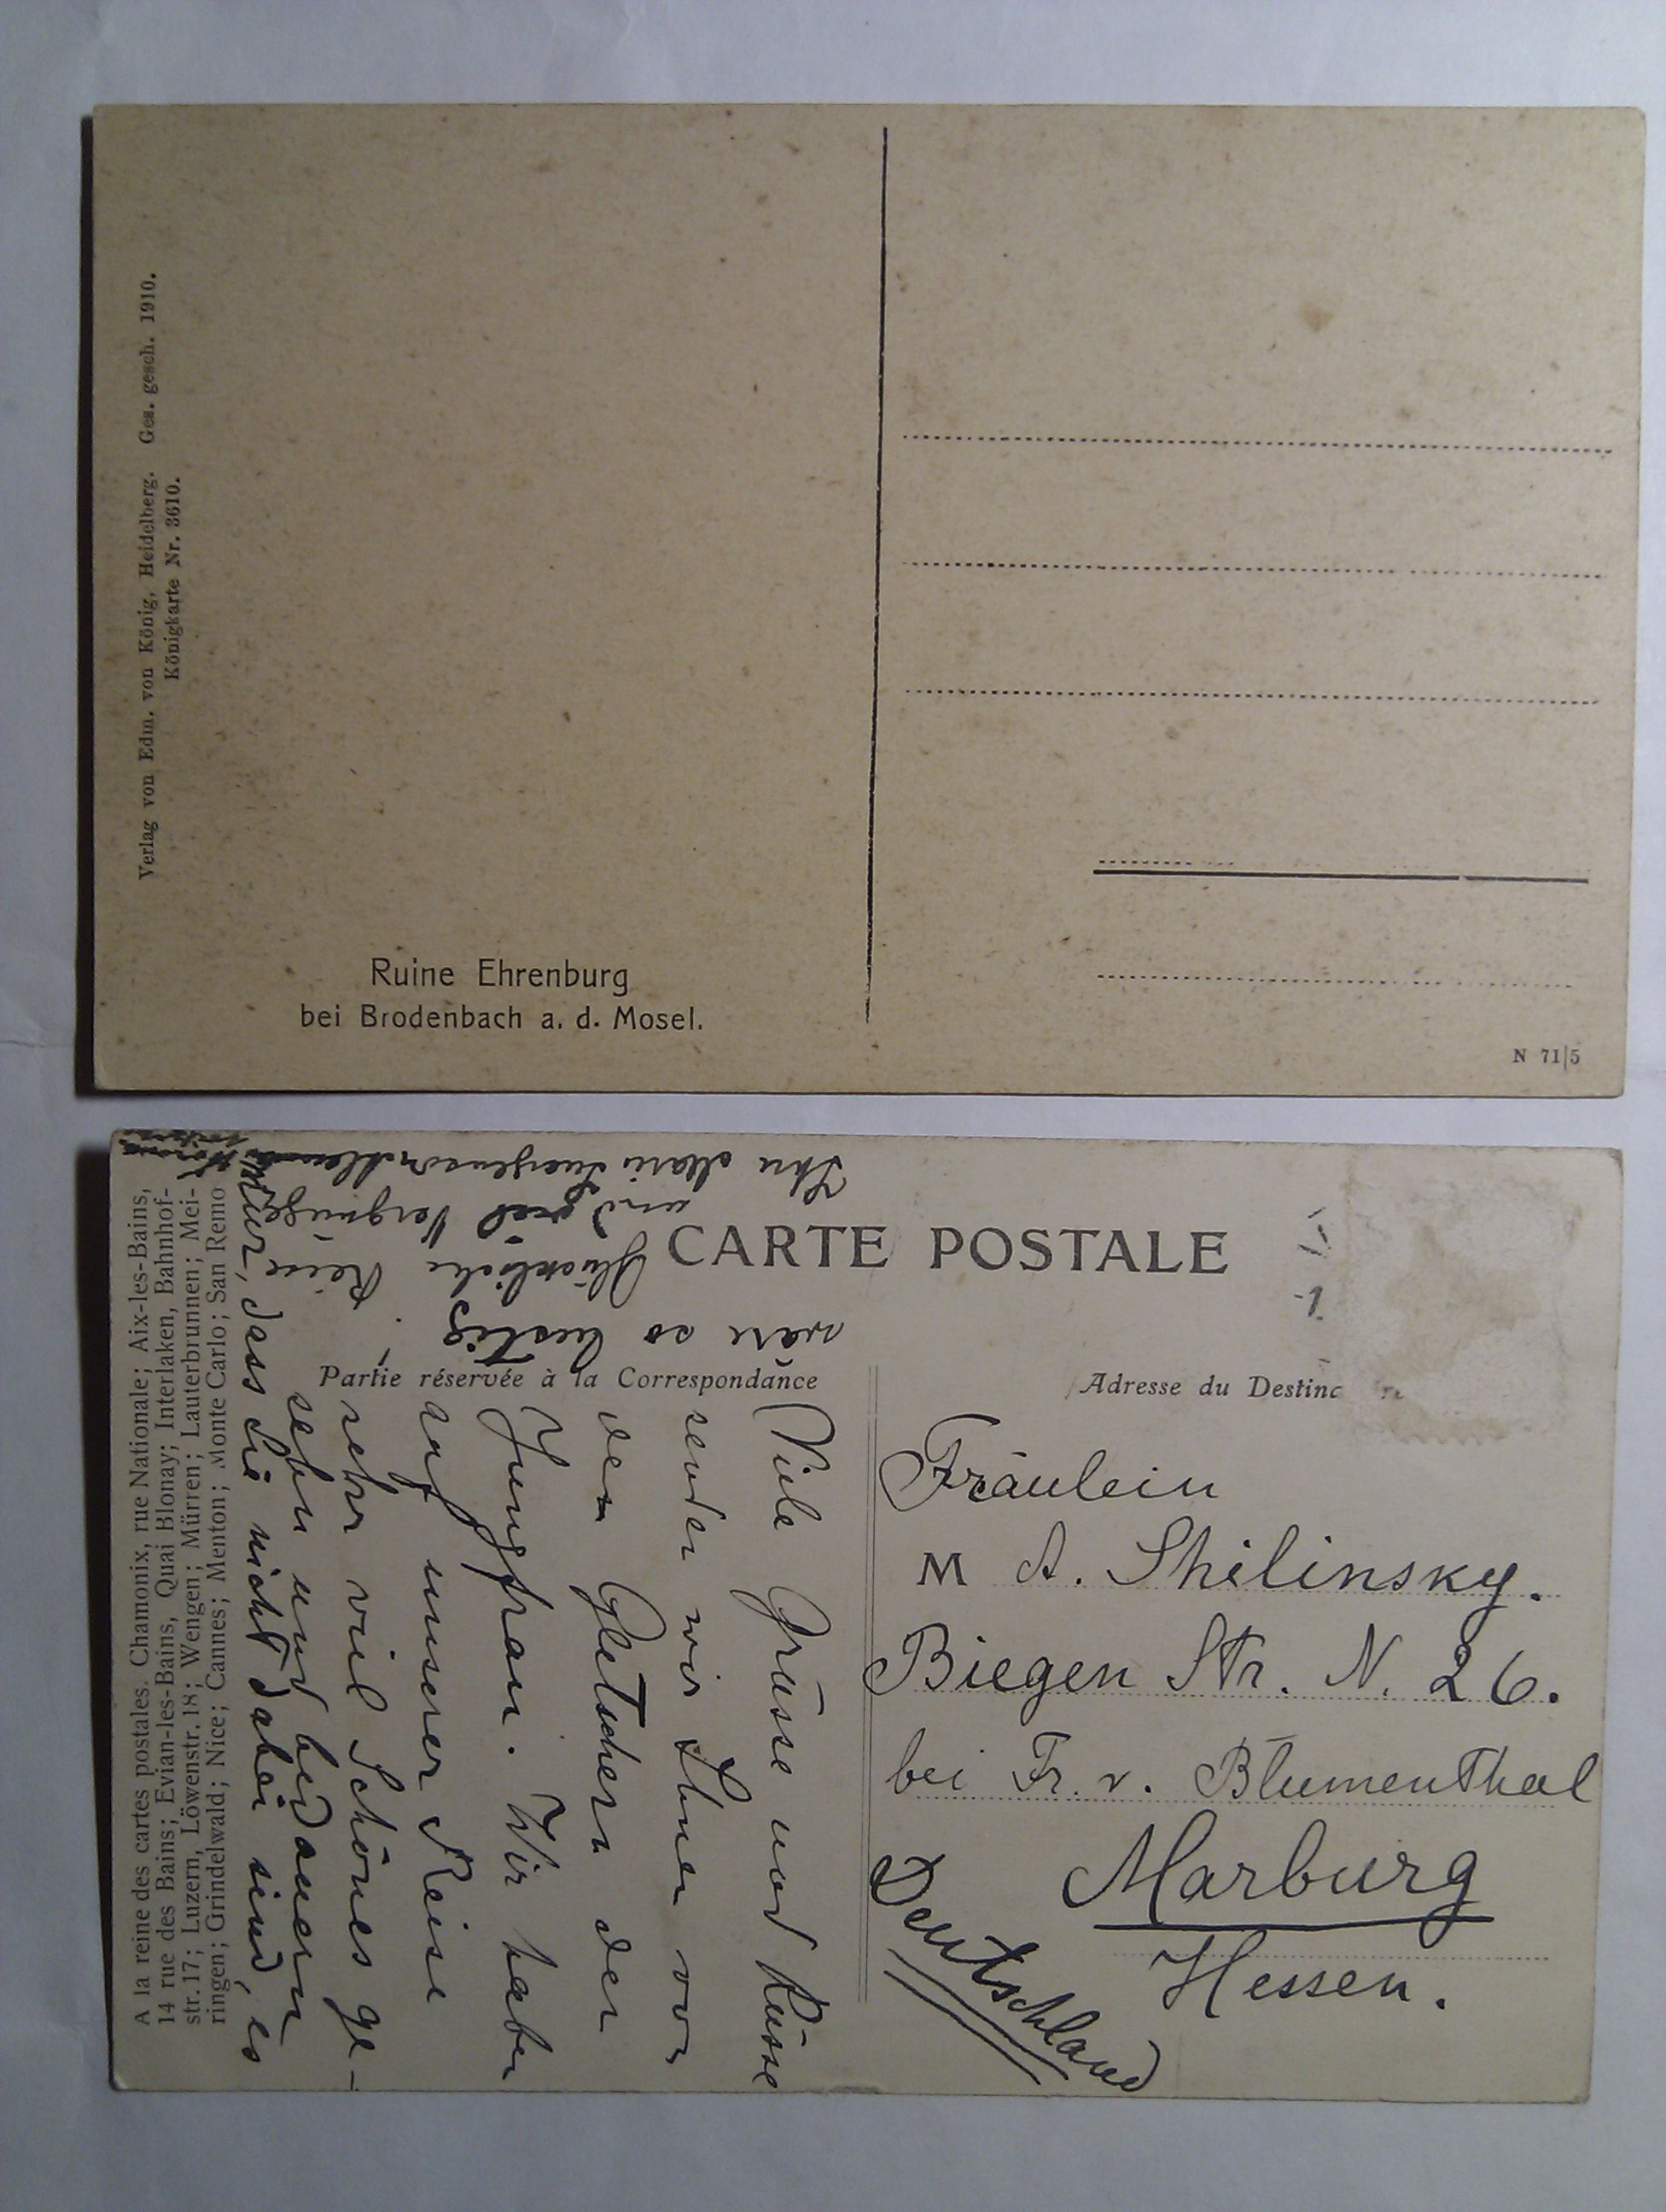 Verlag von Edm. von König, Heidelberg. Ges. gesch. 1910.
Königkarte Nr. 3610.
Ruine Ehrenburg
bei Brodenbach a. d. Mosel.
N 71|5
CARTE POSTALE
Partie réservée à la Correspondance
Adresse du Destinc re
A la reine des cartes postales. Chamonix, rue Nationale; Aix-les-Bains,
14 rue des Bains; Evian-les-Bains, Quai Blonay; Interlaken, Bahnhof-
str. 17; Luzern, Löwenstr. 18; Wengen; Mürren; Lauterbrunnen; Mei-
ringen; Grindelwald; Nice; Cannes; Menton; Monte Carlo; San Remo
Viele Grüsse und Küsse
senden wir Ihnen von
den Gletschern der
Jungfrau. Wir haben
auf unserer Reise
sehr viel Schönes ge-
sehn und bedauern
nur, dass Sie nicht dabei sind, es
wäre so lustig
Glückliche Reise,
und viel Vergnügen
Ihre
Fräulein
M A. Shilinsky.
Biegen Str. N. 26.
bei Fr. v. Blumenthal
Marburg
Hessen.
Deutschland